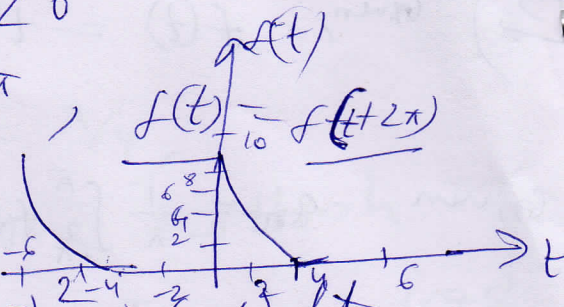 f(t)
, f(t) = f(t+2π)
10
8
6
4
2
-6 -4 -2 2 4 6 t